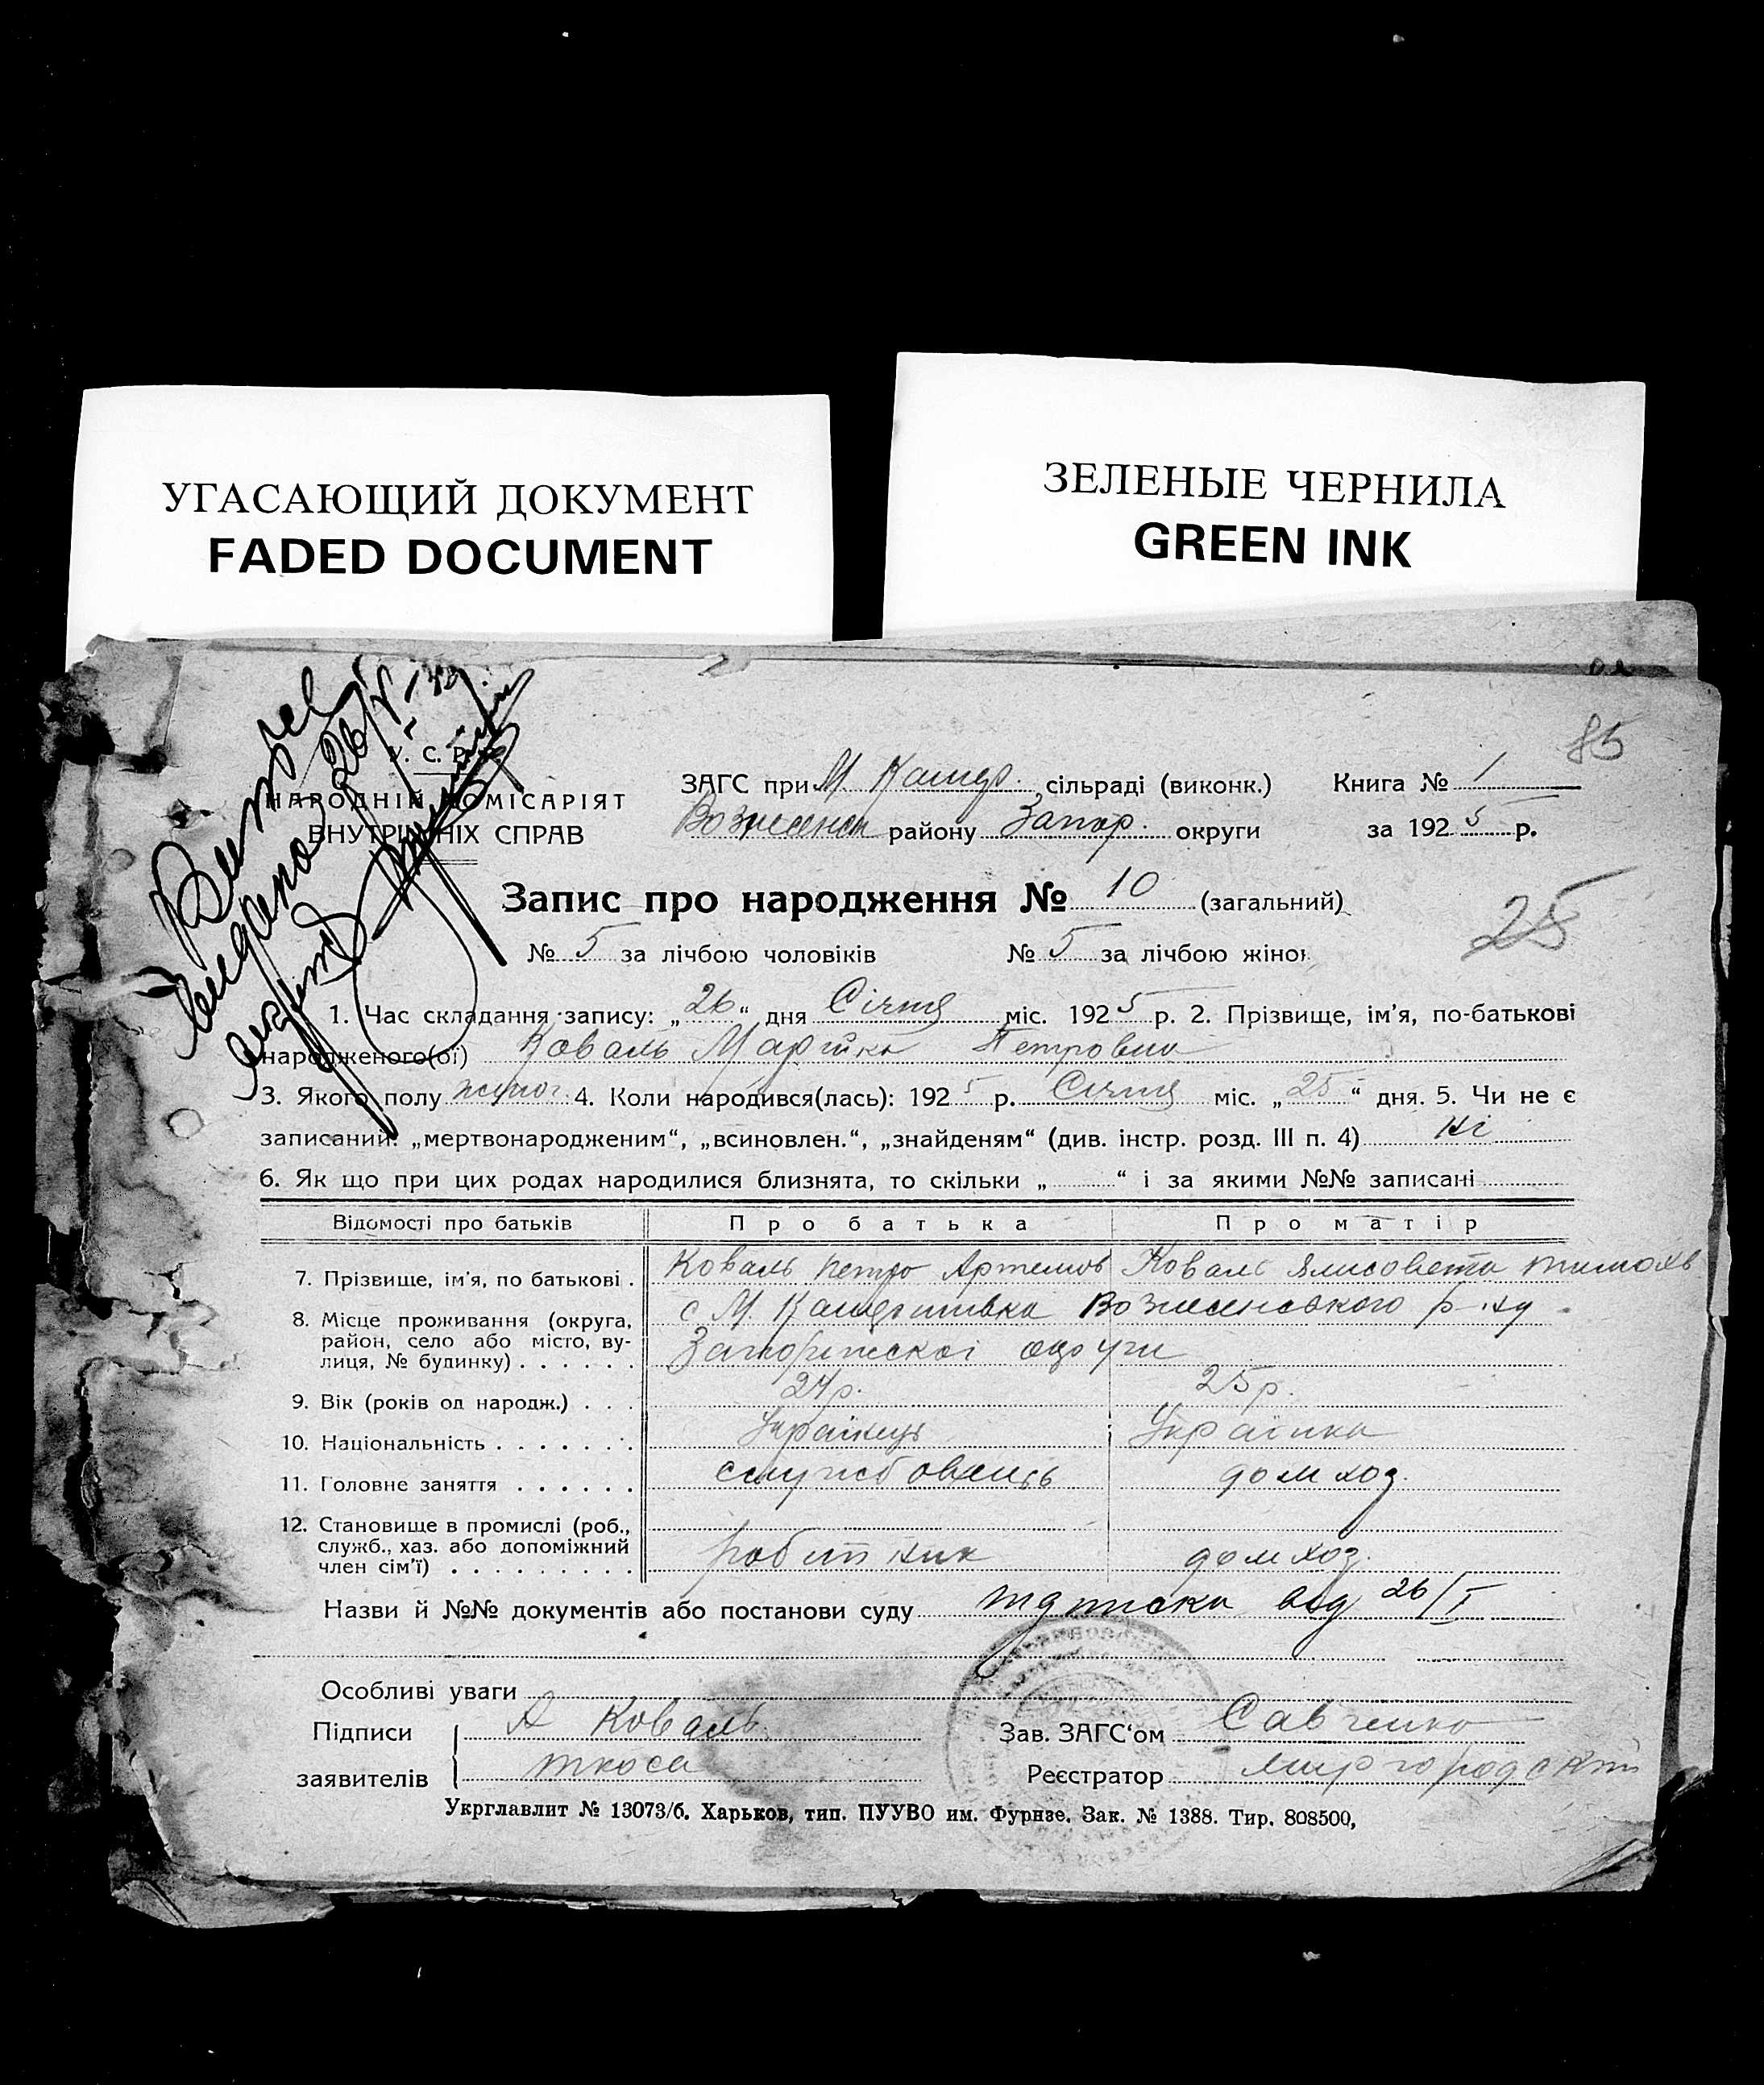 УГАСАЮЩИЙ ДОКУМЕНТ
FADED DOCUMENT
ЗЕЛЕНЫЕ ЧЕРНИЛА
GREEN INK
85
У. С. Р. Р.
НАРОДНІЙ КОМІСАРІЯТ
ВНУТРІШНІХ СПРАВ
ЗАГС при М. сільраді (виконк.) Книга № 1
району Запор. округи за 1925 р.
Запис про народження № 10 (загальний)
25
№ 5 за лічбою чоловіків № 5 за лічбою жінок
1. Час складання запису: „26“ дня Січня міс. 1925 р. 2. Прізвище, ім’я, по-батькові
народженого(ої) Коваль Марійка Петровна
3. Якого полу 4. Коли народився(лась): 1925 р. Січня міс. „25“ дня. 5. Чи не є
записаний: „мертвонародженим“, „всиновлен.“, „знайденям“ (див. інстр. розд. III п. 4) Ні
6. Як що при цих родах народилися близнята, то скільки „ “ і за якими №№ записані
Відомості про батьків Про батька Про матір
7. Прізвище, ім’я, по батькові . Коваль Петро Артемов Коваль Елисовета
8. Місце проживання (округа, район, село або місто, ву-лиця, № будинку) . . . . . . с М. Вознесенського р-ну
округи
9. Вік (років од народж.) . . . 24 р. 25 р.
10. Національність . . . . . . . Українець Українка
11. Головне заняття . . . . . . службовець дом хоз.
12. Становище в промислі (роб., служб., хаз. або допоміжний член сім’ї) . . . . . . . . . робітник дом хоз.
Назви й №№ документів або постанови суду від 26/I
Особливі уваги
Підписи А Коваль Зав. ЗАГС‘ом Савченко
заявителів Реєстратор Миргородский
Укрглавлит № 13073/б. Харьков, тип. ПУУВО им. Фурнзе. Зак. № 1388. Тир. 808500,